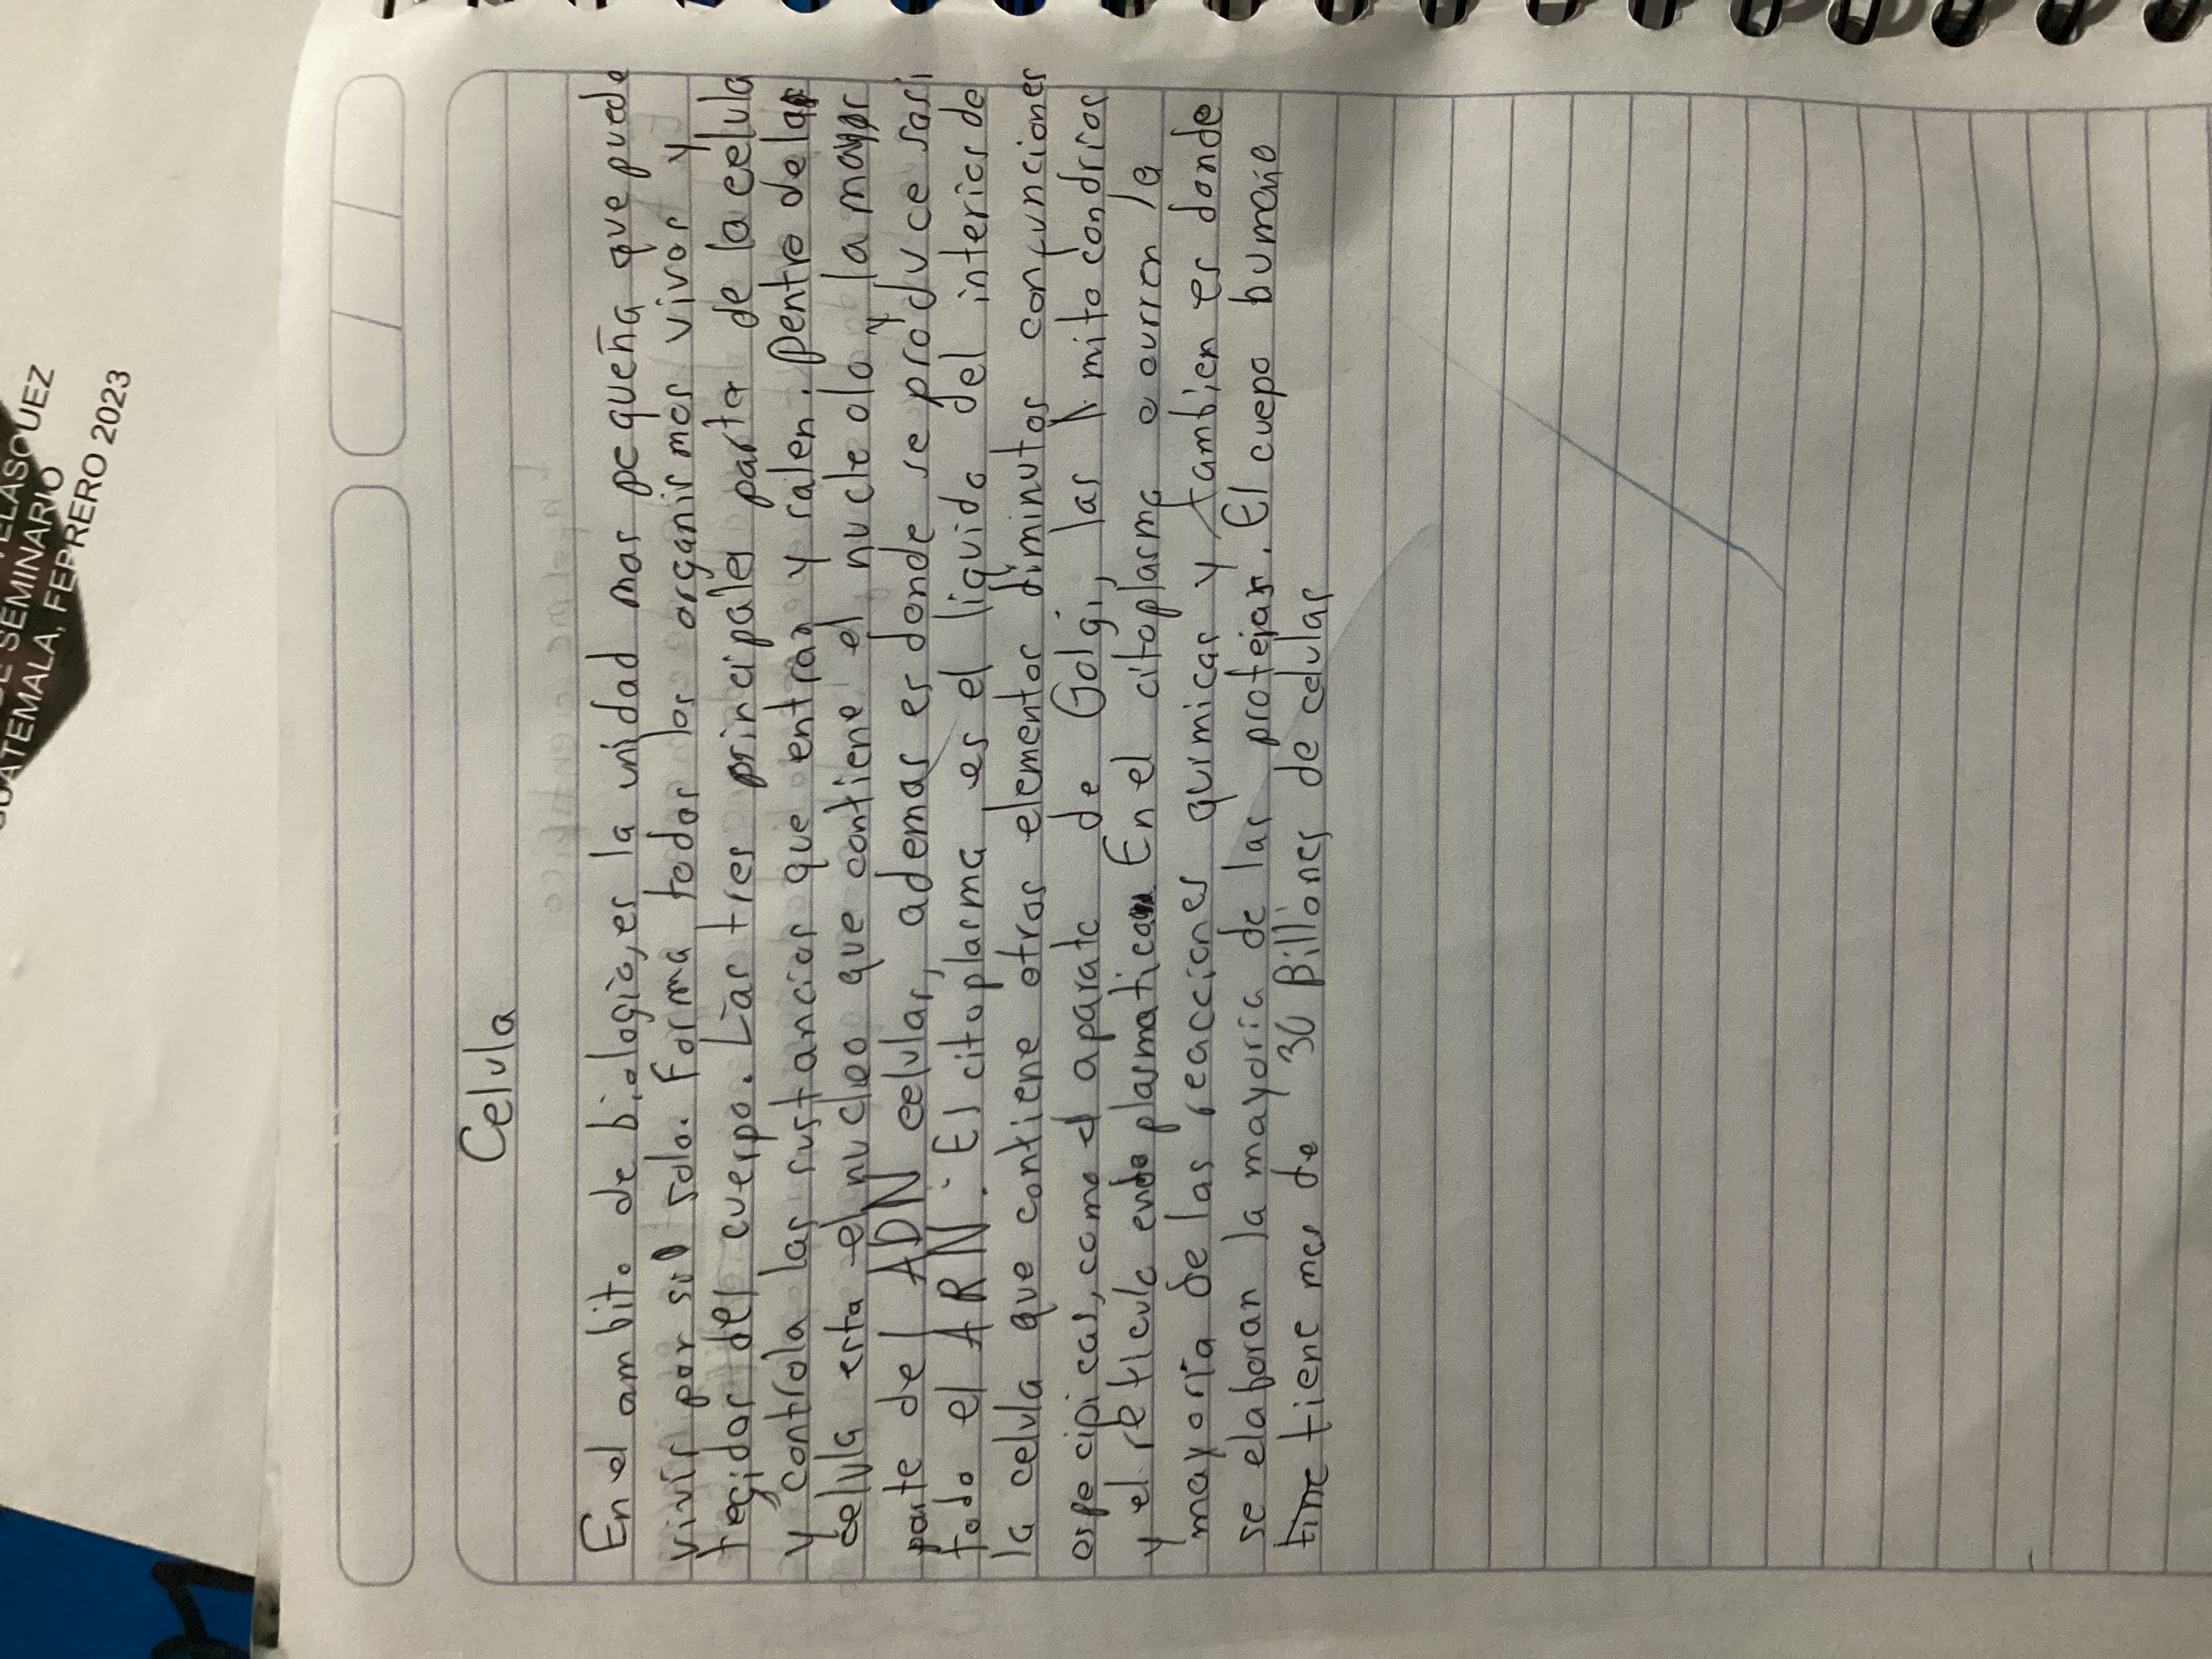 VELASQUEZ
DE SEMINARIO
GUATEMALA, FEBRERO 2023
Celula
En el ambito de biologia, es la unidad mas pequeña que puede
vivir por si solo. Forma todos los organismos vivos y
tegidos del cuerpo. Las tres principales parta de la celula
y controla las sustancias que entran y salen. Dentro de las
celula esta el nucleo que contiene el nucleolo y la mayor
parte del ADN celular, ademas es donde se produce sasi
todo el ARN. El citoplasma es el liquido del interior de
la celula que contiene otros elementos diminutos con funciones
espe cipicas, como el aparato de Golgi, las mitocondrias
y el reticulo endoplasmatica En el citoplasma o curren la
mayoria de las reacciones quimicas y tambien es donde
se elaboran la mayoria de las protejas. El cuepo bumano
tine tiene mas de 30 Billones de celulas